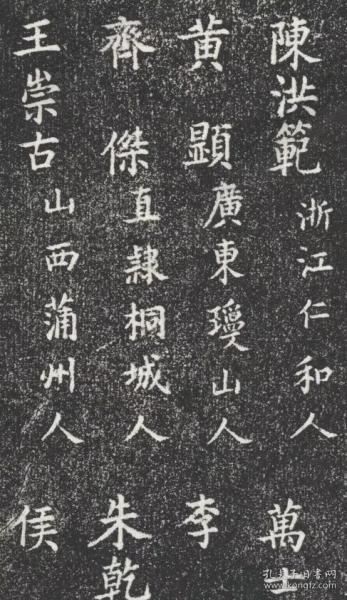 陳洪範 浙江仁和人 萬
黃顯 廣東瓊山人 李
齊傑 直隸桐城人 朱乾
王崇古 山西蒲州人 侯
孔夫子旧书网